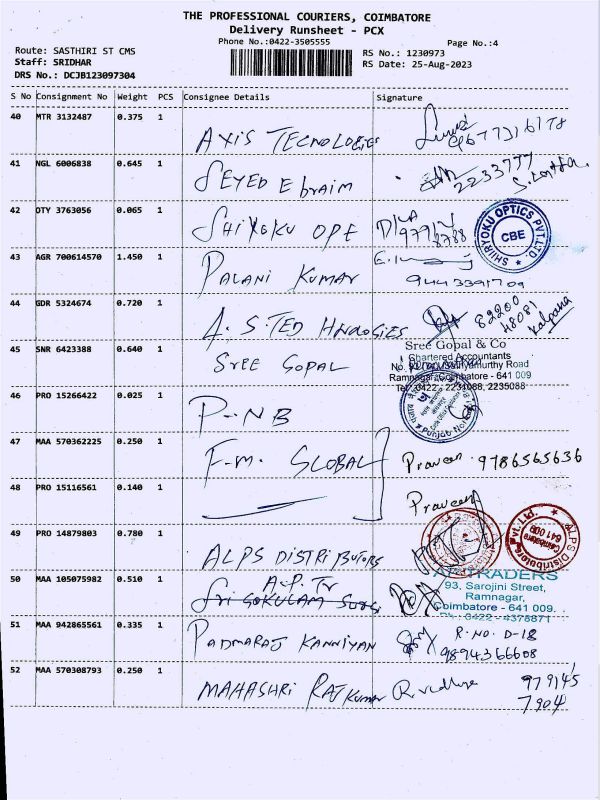 THE PROFESSIONAL COURIERS, COIMBATORE
Delivery Runsheet - PCX
Phone No.:0422-3505555
Page No.:4
Route: SASTHIRI ST CMS
Staff: SRIDHAR
DRS No.: DCJB123097304
RS No.: 1230973
RS Date: 25-Aug-2023
S No Consignment No Weight PCS Consignee Details Signature
40 MTR 3132487 0.375 1
AXIS TECNOLOGIES
41 NGL 6006838 0.645 1
SEYED Ebraim
2233777
42 OTY 3763056 0.065 1
SHIYOKU OPE
SHIRYOKU OPTICS PVT.LTD.
CBE
43 AGR 700614570 1.450 1
PALANI KUMAR
9443391709
44 GDR 5324674 0.720 1
A.S.TED HNOLOGIES
82200
48081
Kalpana
45 SNR 6423388 0.640 1
SREE GOPAL
Sree Gopal & Co
Chartered Accountants
Ramnagar, Coimbatore - 641 009
Tel: 0422 - 2231088, 2235088
46 PRO 15266422 0.025 1
P-NB
Punjab
47 MAA 570362225 0.250 1
F.M. GLOBAL
Praveen 9786565636
48 PRO 15116561 0.140 1
Praveen
49 PRO 14879803 0.780 1
ALPS DISTRIBUTORS
ALPS Distributors Pvt. Ltd.
Coimbatore
641 009
50 MAA 105075982 0.510 1
A.P. Tr
Sri GOKULAM
TRADERS
93, Sarojini Street,
Ramnagar,
Coimbatore - 641 009.
Ph : 0422 - 4378871
51 MAA 942865561 0.335 1
PADMARAJ KANNIYAN
R.NO. D-18
9894366608
52 MAA 570308793 0.250 1
MAHASHRI RAJ Kumar
979145
7904